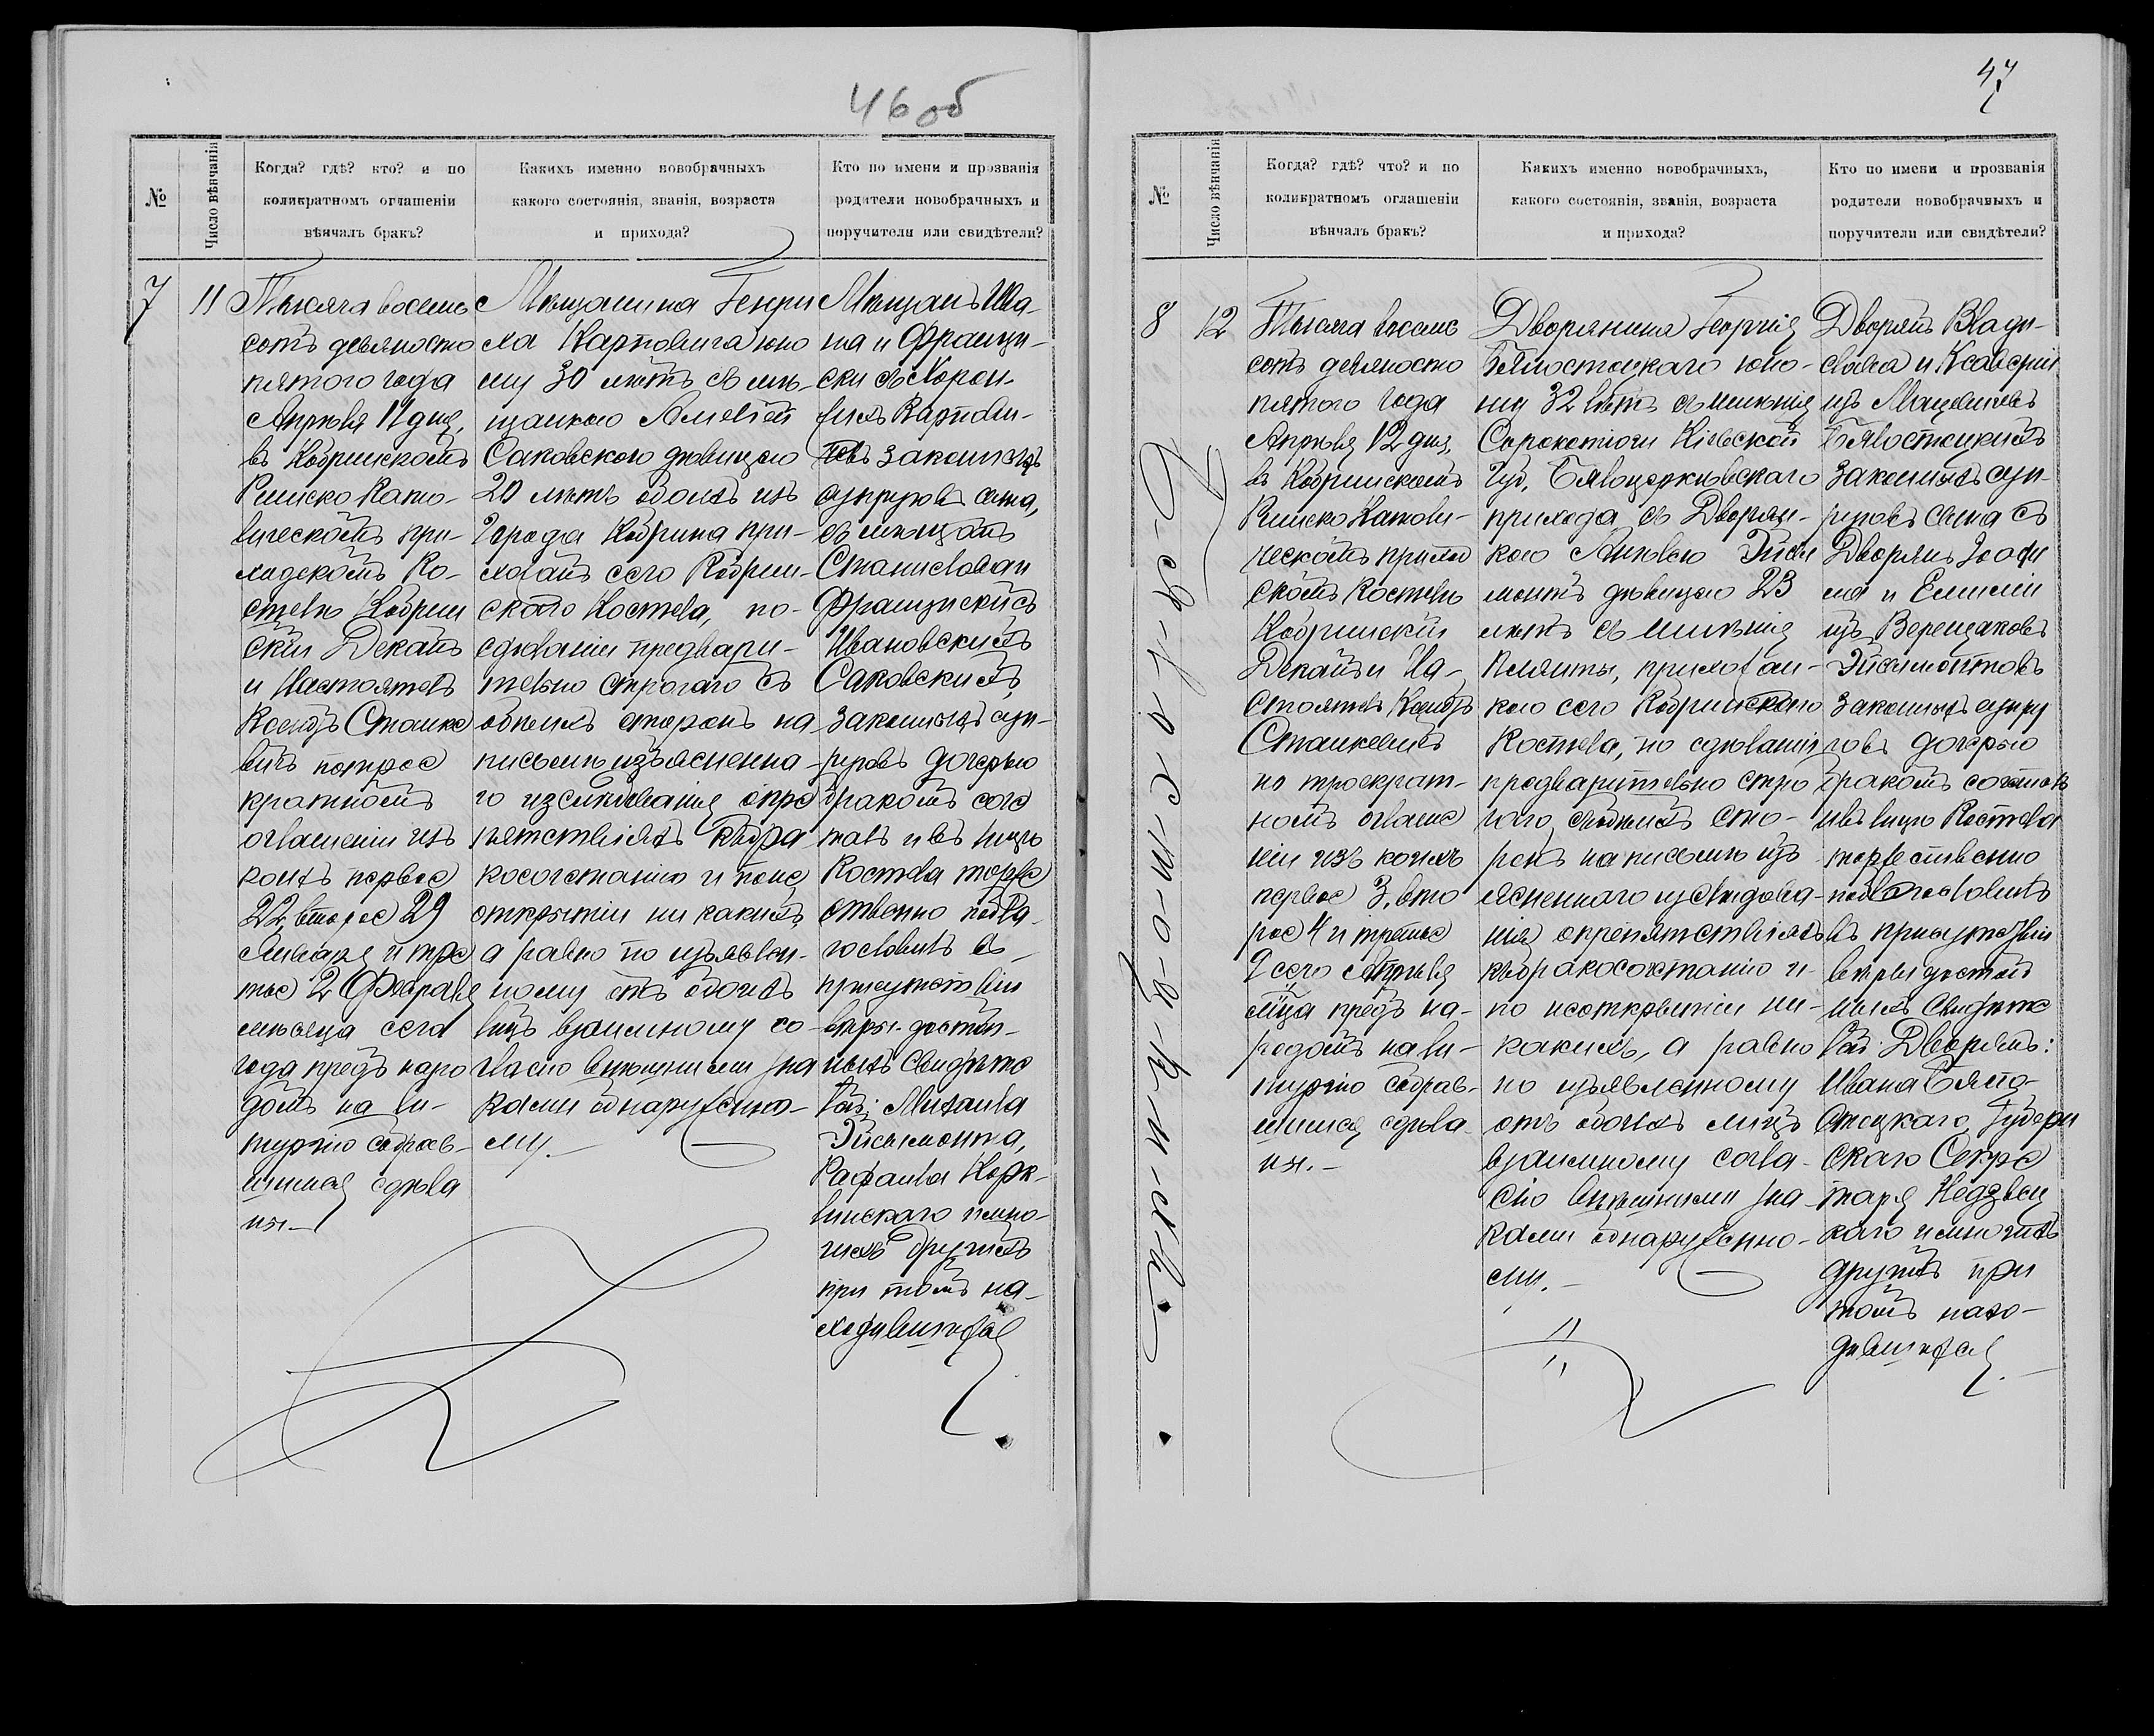 46 об
№
Число вѣнчанія
Когда? гдѣ? кто? и по
коликратномъ оглашеніи
вѣнчалъ бракъ?
Какихъ именно новобрачныхъ
какого состоянія, званія, возраста
и прихода?
Кто по имени и прозванія
родители новобрачныхъ и
поручители или свидѣтели?
7
11
Тысяча восемь
сотъ девяносто
пятого года
Апрѣля 11 дня,
въ Кобринскомъ
Римско Като-
лическомъ при-
ходскомъ Ко-
стелѣ Кобрин
скій Деканъ
и Настоятель
Ксендзъ Станке
вичъ по трое
кратномъ
оглашеніи изъ
коихъ первое
22, второе 29
Января и тре
тье 2 Февраля
мѣсяца сего
года предъ наро
домъ на ли-
тургію собрав-
шимся сдѣла
ны.-
Мѣщанина Генри
ха Карповича юно
шу 30 лѣтъ съ мѣ-
щанкою Амеліей
Саковскою дѣвицею
20 лѣтъ обоихъ изъ
города Кобрина при-
хожанъ сего Кобрин-
скаго Костела, по-
сдѣланіи предвари-
тельно строгаго съ
обѣихъ сторонъ на
письмѣ изъясненна-
го изслѣдованія о пре
пятствіяхъ къ бра
косочетанію и по не
открытіи ни какихъ,
а равно по изъявлен-
ному отъ обоихъ
лицъ взаимному со-
гласію внѣшними зна
ками обнаруженно-
му.-
Мѣщанъ Ива-
на и Францис-
ки
Карпови-
законныхъ
супруговъ сына,
съ мѣщанъ
Станислава и
Францишки съ
Ивановскихъ
Саковскихъ,
законныхъ суп-
руговъ дочерью
бракомъ соче
талъ и въ лицѣ
Костела торже
ственно побла-
гословилъ въ
присутствіи
вѣры достой-
ныхъ свидѣте
лей: Михаила
Эйсымонта,
Рафаила
и мно-
гихъ другихъ
при томъ на-
ходившихся
47
№
Число вѣнчанія
Когда? гдѣ? что? и по
коликратномъ оглашеніи
вѣнчалъ бракъ?
Какихъ именно новобрачныхъ,
какого состоянія, званія, возраста
и прихода?
Кто по имени и прозванія
родители новобрачныхъ и
поручители или свидѣтели?
8
12
Тысяча восемь
сотъ девяносто
пятого года
Апрѣля 12 дня,
въ Кобринскомъ
Римско Католи-
ческомъ приход
скомъ Костелѣ
Кобринскій
Деканъ и На-
стоятель Ксендзъ
Станкевичъ
по троекрат-
номъ оглаше
ніи изъ коихъ
первое 3, вто
рое 4 и третье
9 сего Апрѣля
м̃ца предъ на-
родомъ на ли-
тургію собрав-
шимся сдѣла-
ны.-
Дворянина Георгія
Бялостоцкаго юно-
шу 32 лѣтъ съ имѣнія
Сорокотяги Кіевской
Губ, Бялоцерковскаго
прихода съ Дворян-
кою Эйсы
монтъ дѣвицею 23
лѣтъ съ имѣнія
прихожан-
кою сего Кобринскаго
Костела, по сдѣланіи
предварительно стро
гаго съ обѣихъ сто-
ронъ на письмѣ изъ
ясненнаго изслѣдова-
нія о препятствіяхъ
къ бракосочетанію и-
по неоткрытіи ни-
какихъ, а равно
по изъявленному
отъ обоихъ лицъ
взаимному согла-
сію внѣшними зна
ками обнаруженно-
му.-
Дворянъ Влади-
слава и Ксаверіи
изъ
Бялостоцкихъ
законныхъ суп-
руговъ сына съ
Дворянъ
и Емиліи
изъ Верещаковъ
Эйсымонтовъ
законныхъ супру
говъ дочерью
бракомъ сочеталъ
и въ лицѣ Костела
торжественно
поблагословилъ
въ присутствіи
вѣры достой
ныхъ Свидѣте
лей: Дворянъ:
Ивана Бяло-
стоцкаго, Губерн
скаго Секре
таря Недзвец
каго и многихъ
другихъ при
томъ нахо-
дившихся.-